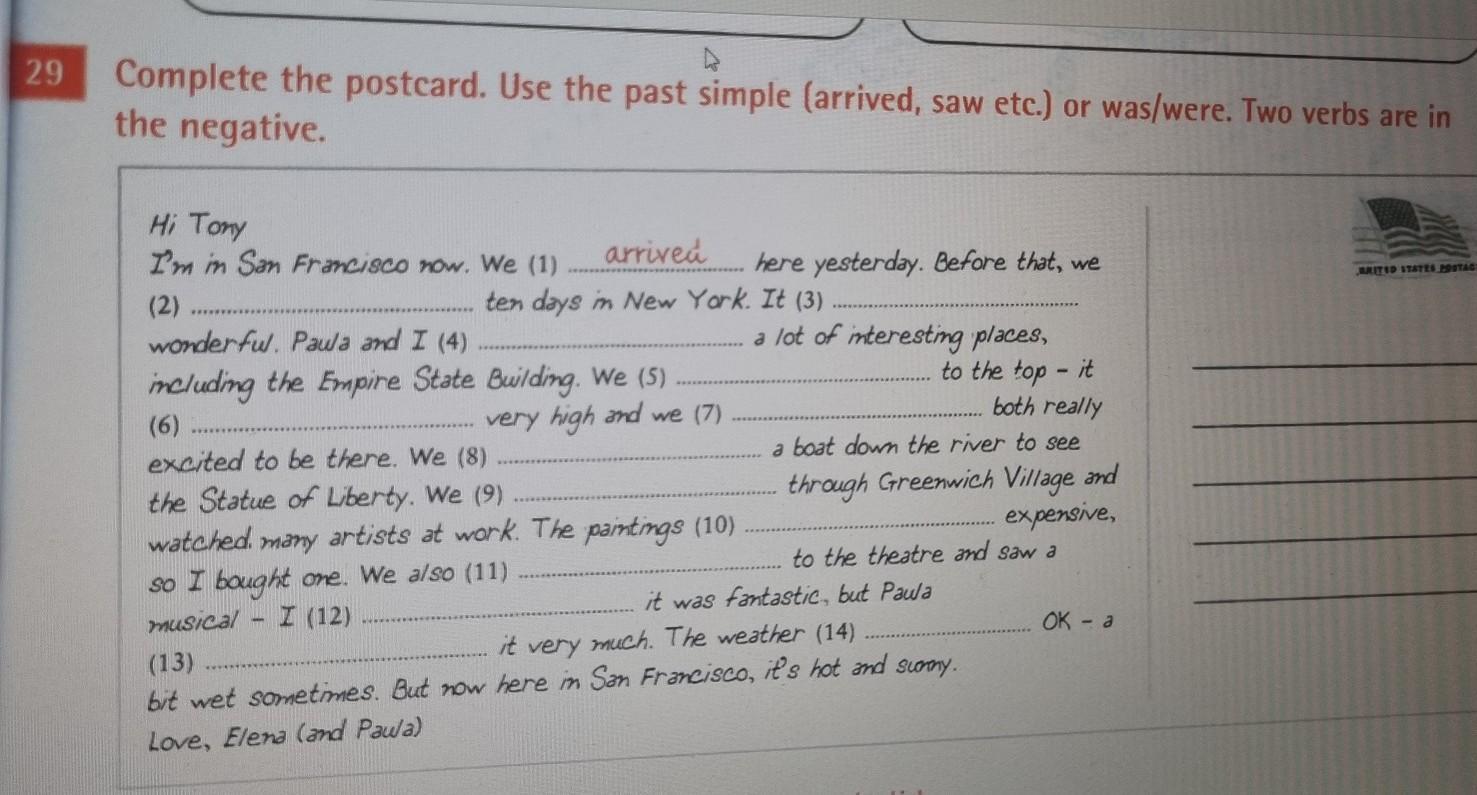 29
Complete the postcard. Use the past simple (arrived, saw etc.) or was/were. Two verbs are in
the negative.
Hi Tony
I'm in San Francisco now. We (1) arrived here yesterday. Before that, we
(2) ........ ten days in New York. It (3) ........
wonderful. Paula and I (4) ........ a lot of interesting places,
including the Empire State Building. We (5) ........ to the top - it
(6) ........ very high and we (7) ........ both really
excited to be there. We (8) ........ a boat down the river to see
the Statue of Liberty. We (9) ........ through Greenwich Village and
watched many artists at work. The paintings (10) ........ expensive,
so I bought one. We also (11) ........ to the theatre and saw a
musical - I (12) ........ it was fantastic, but Paula
(13) ........ it very much. The weather (14) ........ OK - a
bit wet sometimes. But now here in San Francisco, it's hot and sunny.
Love, Elena (and Paula)
UNITED STATES POSTAG